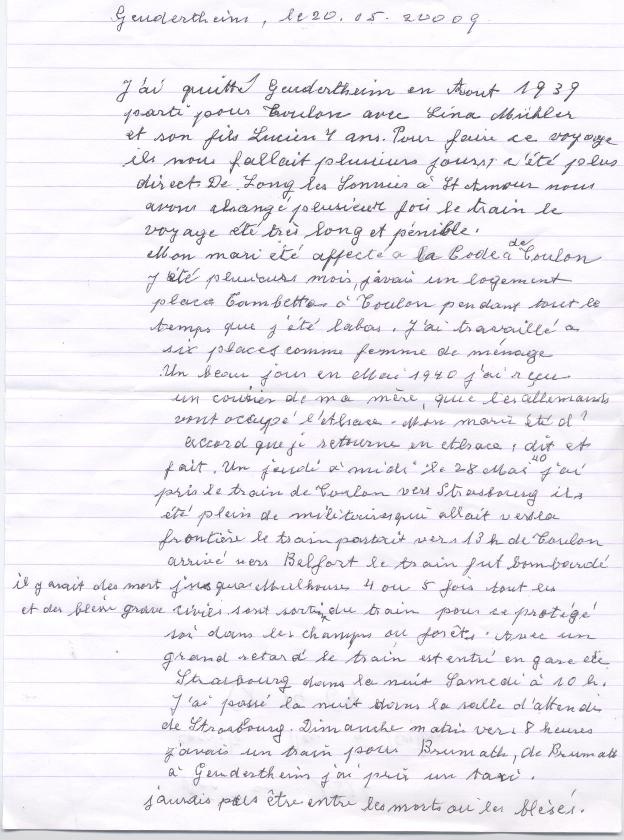 Geudertheim, le 20.05.20009
J'ai quitté Geudertheim en Aout 1939
parti pour Toulon avec Lina Mühler
et son fils Lucien 4 ans. Pour faire ce voyage
ils nous fallait plusieurs jours; s'été plus
direct De Long les Sonnies à St Amour nous
avons changé plusieur fois le train le
voyage été très long et pénible.
Mon mari été affecté a la Code a de Toulon
J'été plusieurs mois, j'avais un logement
place Gambetta à Toulon pendant tout le
temps que j'été labas. J'ai travaillé a
six places comme femme de ménage
Un beau jour en Mai 1940 j'ai reçu
un courier de ma mère, que les allemands
vont occupé l'Alsace. Mon marie été d'
accord que je retourne en Alsace, dit et
fait. Un jeudi à midi le 28 Mai 40 j'ai
pris le train de Toulon vers Strasbourg ils
été plein de militaires qui allait vers la
frontière le train partait vers 13 h de Toulon
arrivé vers Belfort le train fut bombardé
il y avait des mort jusqua Mulhouse 4 ou 5 fois tout les
et des blésé grave civiles sont sortir du train pour se protégé
soi dans les champs ou forêts. Avec un
grand retard le train est entré en gare de
Strasbourg dans la nuit Samedi à 10 h.
J'ai passé la nuit dans la salle d'attendi
de Strasbourg. Dimanche matin vers 8 heures
j'avais un train pour Brumath, de Brumath
à Geudertheim j'ai pris un taxi.
j'aurais pus être entre les morts ou les blésés.